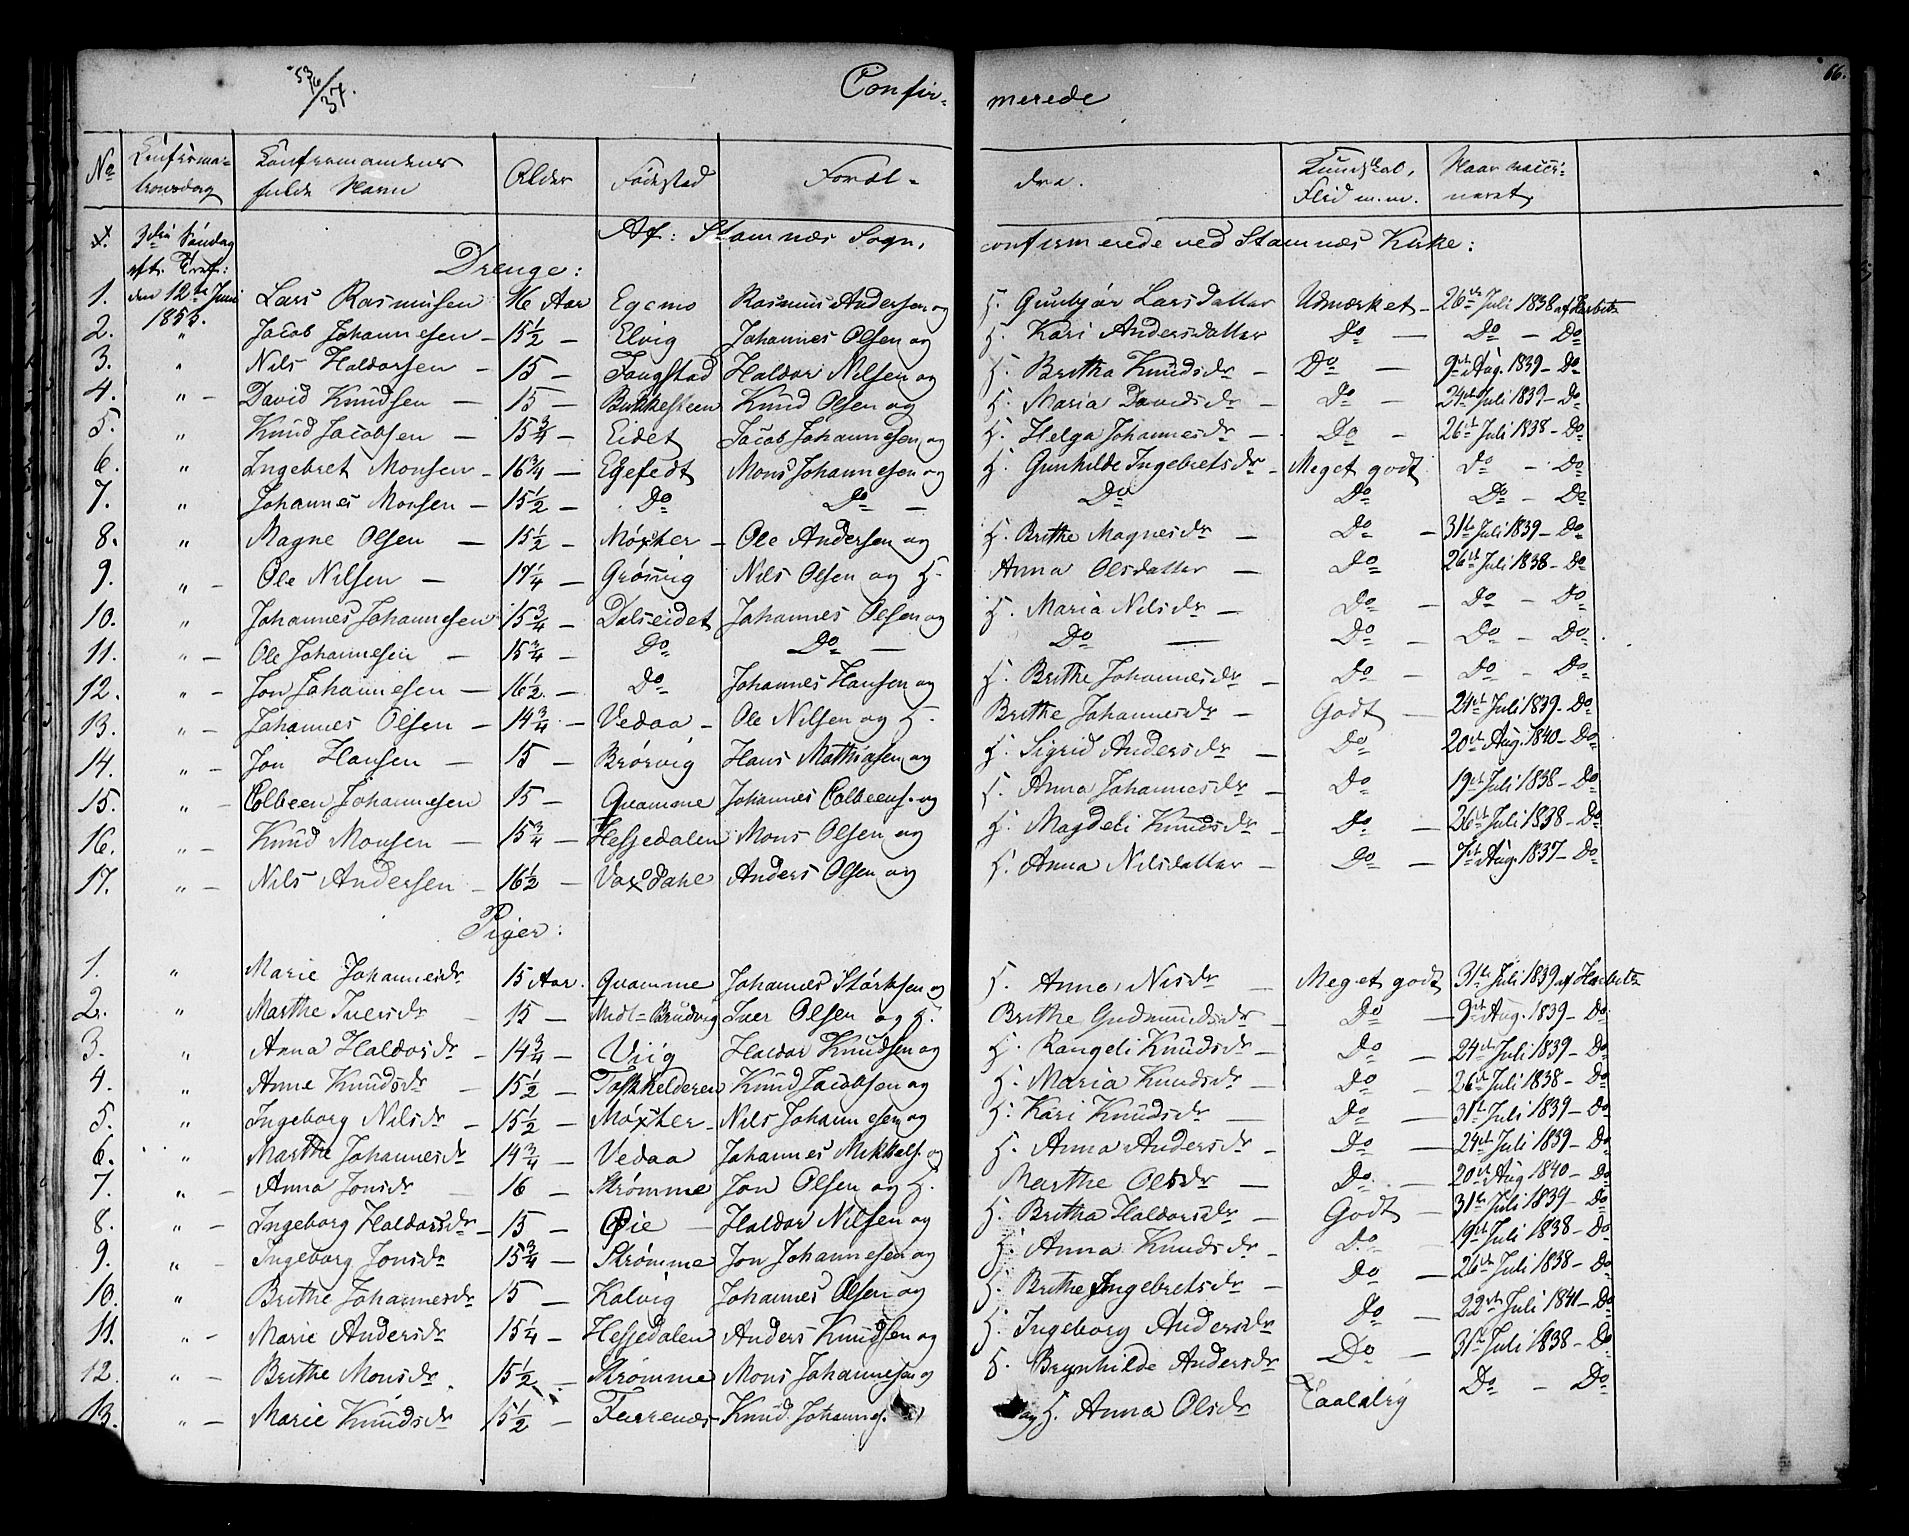 53/6/37.
Confir- merede
66.
No Confirma- Confirmandens Alder Fødested Foræl- dre. Kundskab, Naar vacci-
tionsdag fulde Navn Flid m.m. neret.
3die Søndag Af: Stamnæs Sogn, confirmerede ved Stamnæs Kirke:
eft. Tref: Drenge:
1. den 12te Juni Lars Rasmusen 16 Aar Rasmus Andersen og H. Gunbjør Larsdatter Udmærket - 26de Juli 1838 af Harbitz
2. Jacob Johannesen - 15 1/2 - Elvig Johannes Olsen og H. Kari Andersdatter Do - Do - Do
3. " Nils Haldorsen - 15 - Fougstad Haldor Nilsen og H. Britha Knudsdr - Do - 9de Aug. 1839 - Do
4. " - David Knudsen - 15 - Bukkesteen Knud Olsen og H. Maria Davidsdr - Do - 24de Juli 1839 - Do
5. " Knud Jacobsen - 15 3/4 - Eidet Jacob Johannesen og H. Helga Johannesdr - Do - 26de Juli 1838 - Do
6. " Ingebret Monsen - 16 3/4 - Egefedt Mons Johannesen og H. Gunhilde Ingebretsdr - Meget godt Do - Do
7. " Johannes Monsen - 15 1/2 - Do Do - Do Do Do - Do
8. " Magne Olsen - 15 1/2 - Møxter - Ole Andersen og H. Brithe Magnesdr - Do - 31te Juli 1839 - Do
9. " - Ole Nilsen - 17 1/4 - Nils Olsen og H. Anna Olsdatter - Do 26de Juli 1838 - Do
10. " Johannes Johannesen 15 3/4 - Dalseidet Johannes Olsen og H. Maria Nilsdr - Do - Do - Do
11. " - Ole Johannesen - 15 3/4 - Do Do - Do - Do - Do - Do
12. " - Jon Johannesen - 16 1/2 - Do Johannes Hansen og H. Brithe Johannesdr - Do - Do - Do
13. " - Johannes Olsen - 14 3/4 - Vedaa - Ole Nilsen og H. Brithe Johannesdr - Godt - 24de Juli 1839 - Do
14. " - Jon Hansen - 15 - Brørvig Hans Matthiasen og H. Sigrid Andersdr - Do 20de Aug. 1840 - Do
15. " - Colbeen Johannesen 15 - Quamme Johannes Colbeens. og H. Anna Johannesdr - Do 19de Juli 1838 - Do
16. " - Knud Monsen - 15 3/4 - Hesjedalen Mons Olsen og H. Magdeli Knudsdr - Do - 26de Juli 1838 - Do
17. " - Nils Andersen - 16 1/2 - Anders Olsen og H. Anna Nilsdatter - Do - 7de Aug. 1837 - Do
Piger:
1. " Marie Johannesdr 15 Aar. Quamme Johannes Størksen og H. Anna Nilsdr - Meget godt 31te Juli 1839 af Harbitz
2. " Marthe Iversdr - 15 - Midt-Brudvig Iver Olsen og H. Brithe Gudmundsdr - Do - 9de Aug. 1839 - Do
3. " Anna Haldorsdr - 14 3/4 - Viig Haldor Knudsen og H. Rangeli Knudsdr - Do - 24de Juli 1839 - Do
4. " Anne Knudsdr - 15 1/2 - Knud Jacobsen og H. Maria Knudsdr - Do - 26de Juli 1838 - Do
5. " Ingeborg Nilsdr - 15 1/2 - Møxter - Nils Johannesen og H. Kari Knudsdr - Do - 31te Juli 1839 - Do
6. " Marthe Johannesdr 14 3/4 - Vedaa Johannes Mikkels. og H. Anna Andersdr - Do - 24de Juli 1839 - Do
7. " - Anna Jonsdr - 16 - Strømme Jon Olsen og H. Marthe Olsdr - Do - 20de Aug 1840 - Do
8. " - Ingeborg Haldorsdr - 15 - Øie - Haldor Nilsen og H. Britha Haldorsdr - Godt - 31te Juli 1839 - Do
9. " - Ingeborg Jonsdr 15 3/4 - Strømme Jon Johannesen og H. Anna Knudsdr - Do 19de Juli 1838 - Do
10. " Brithe Johannesdr 15 - Kalvig Johannes Olsen og H. Brithe Ingebretsdr - Do - 26de Juli 1838 - Do
11. " - Marie Andersdr 15 1/4 - Hesjedalen Anders Knudsen og H. Ingeborg Andersdr Do - 22de Juli 1841 - Do
12. " - Brithe Monsdr 15 1/2 - Strømme Mons Johannesen og H. Brynhilde Andersdr Do - 31te Juli 1838 - Do
13. " - Marie Knudsdr 15 1/2 - Furrenæs - Knud Johannes. og H. Anna Olsdr Taalelig Do - Do